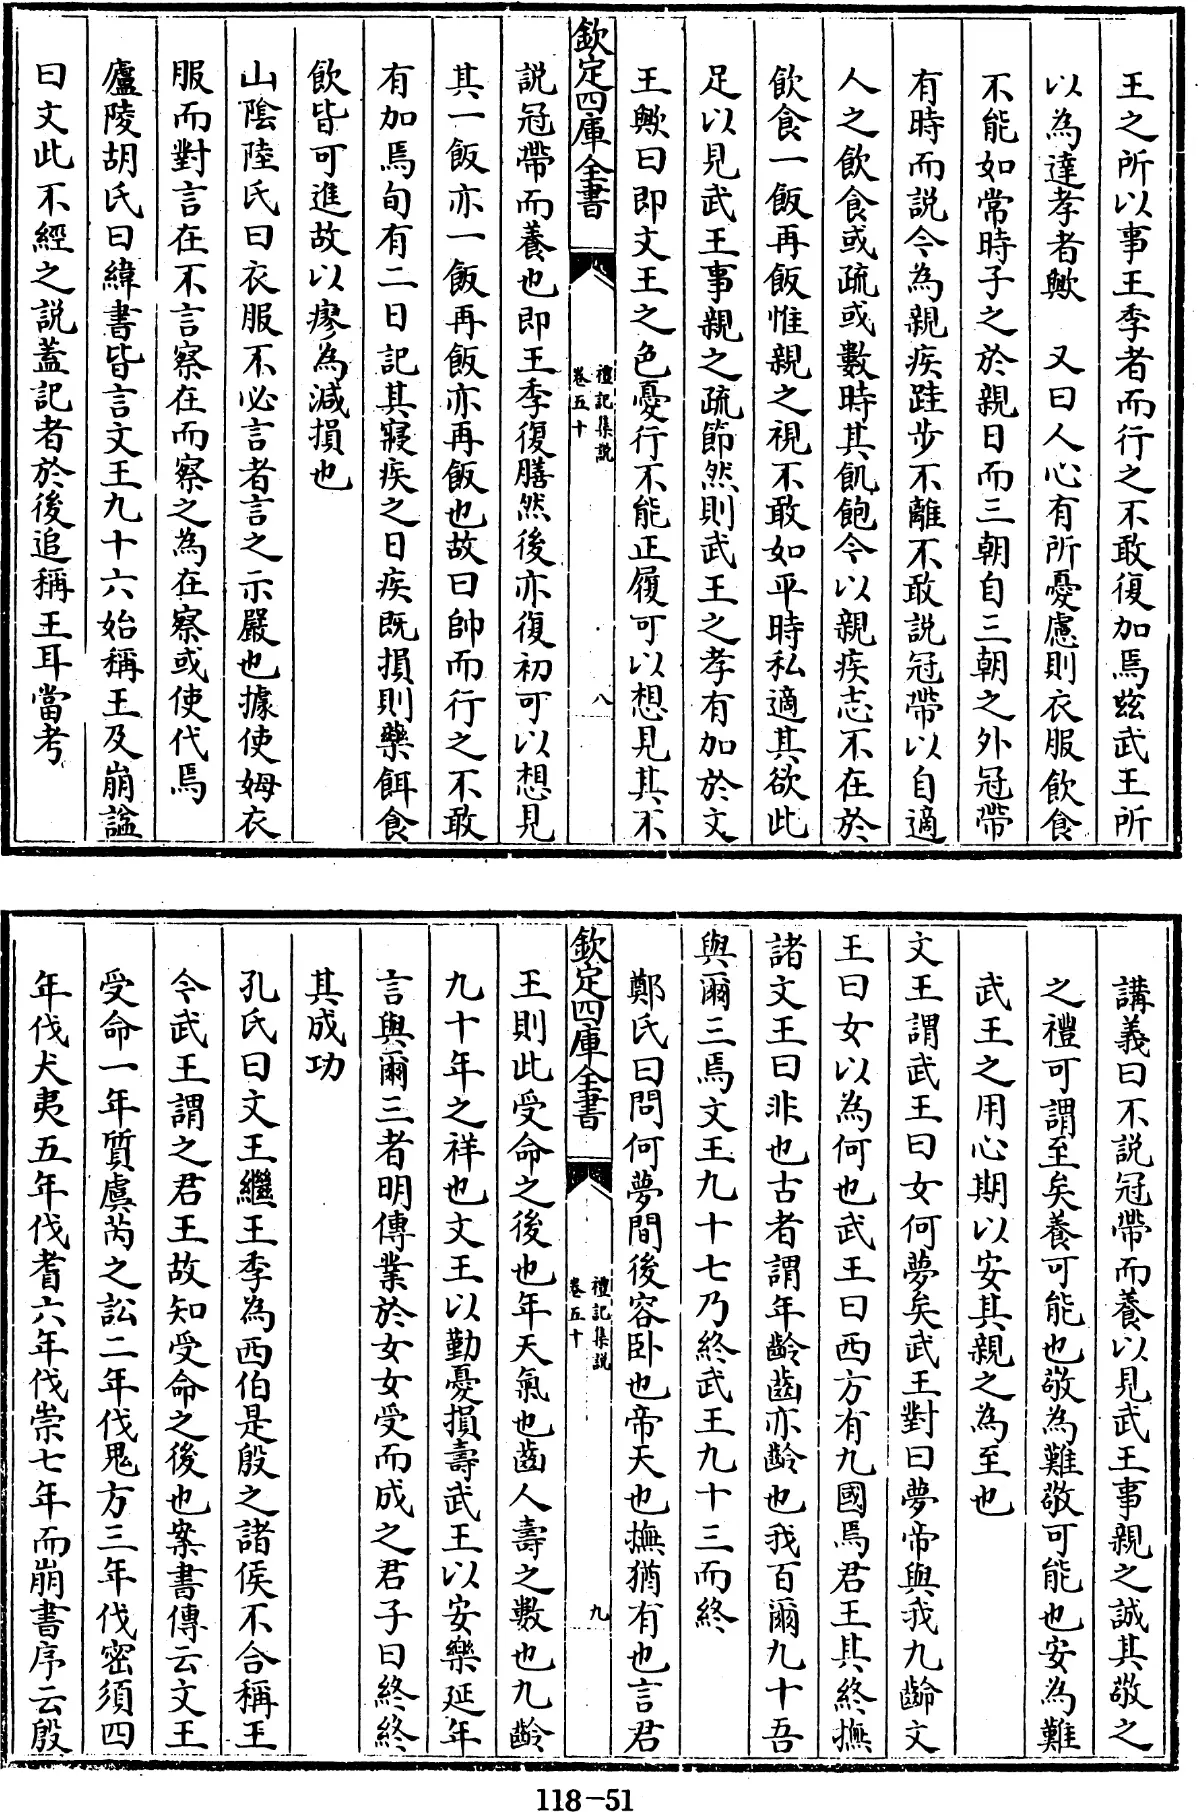 王之所以事王季者而行之不敢復加焉兹武王所
以為達孝者歟　又曰人心有所憂慮則衣服飲食
不能如常時子之於親日而三朝自三朝之外冠帶
有時而説今為親疾跬步不離不敢説冠帶以自適
人之飲食或疏或數時其飢飽今以親疾志不在於
飲食一飯再飯惟親之視不敢如平時私適其欲此
足以見武王事親之疏節然則武王之孝有加於文
王歟曰即文王之色憂行不能正履可以想見其不
欽定四庫全書
禮記集説
卷五十
八
説冠帶而養也即王季復膳然後亦復初可以想見
其一飯亦一飯再飯亦再飯也故曰帥而行之不敢
有加焉旬有二日記其寢疾之日疾既損則藥餌食
飲皆可進故以瘳為減損也
山隂陸氏曰衣服不必言者言之示嚴也據使姆衣
服而對言在不言察在而察之為在察或使代焉
廬陵胡氏曰緯書皆言文王九十六始稱王及崩諡
曰文此不經之説蓋記者於後追稱王耳當考
講義曰不説冠帶而養以見武王事親之誠其敬之
之禮可謂至矣養可能也敬為難敬可能也安為難
武王之用心期以安其親之為至也
文王謂武王曰女何夢矣武王對曰夢帝與我九齡文
王曰女以為何也武王曰西方有九國焉君王其終撫
諸文王曰非也古者謂年齡齒亦齡也我百爾九十吾
與爾三焉文王九十七乃終武王九十三而終
鄭氏曰問何夢間後容卧也帝天也撫猶有也言君
欽定四庫全書
禮記集説
卷五十
九
王則此受命之後也年天氣也齒人壽之數也九齡
九十年之祥也文王以勤憂損壽武王以安樂延年
言與爾三者明傳業於女女受而成之君子曰終終
其成功
孔氏曰文王繼王季為西伯是殷之諸侯不合稱王
今武王謂之君王故知受命之後也案書傳云文王
受命一年質虞芮之訟二年伐鬼方三年伐密須四
年伐犬夷五年伐耆六年伐崇七年而崩書序云殷
118-51